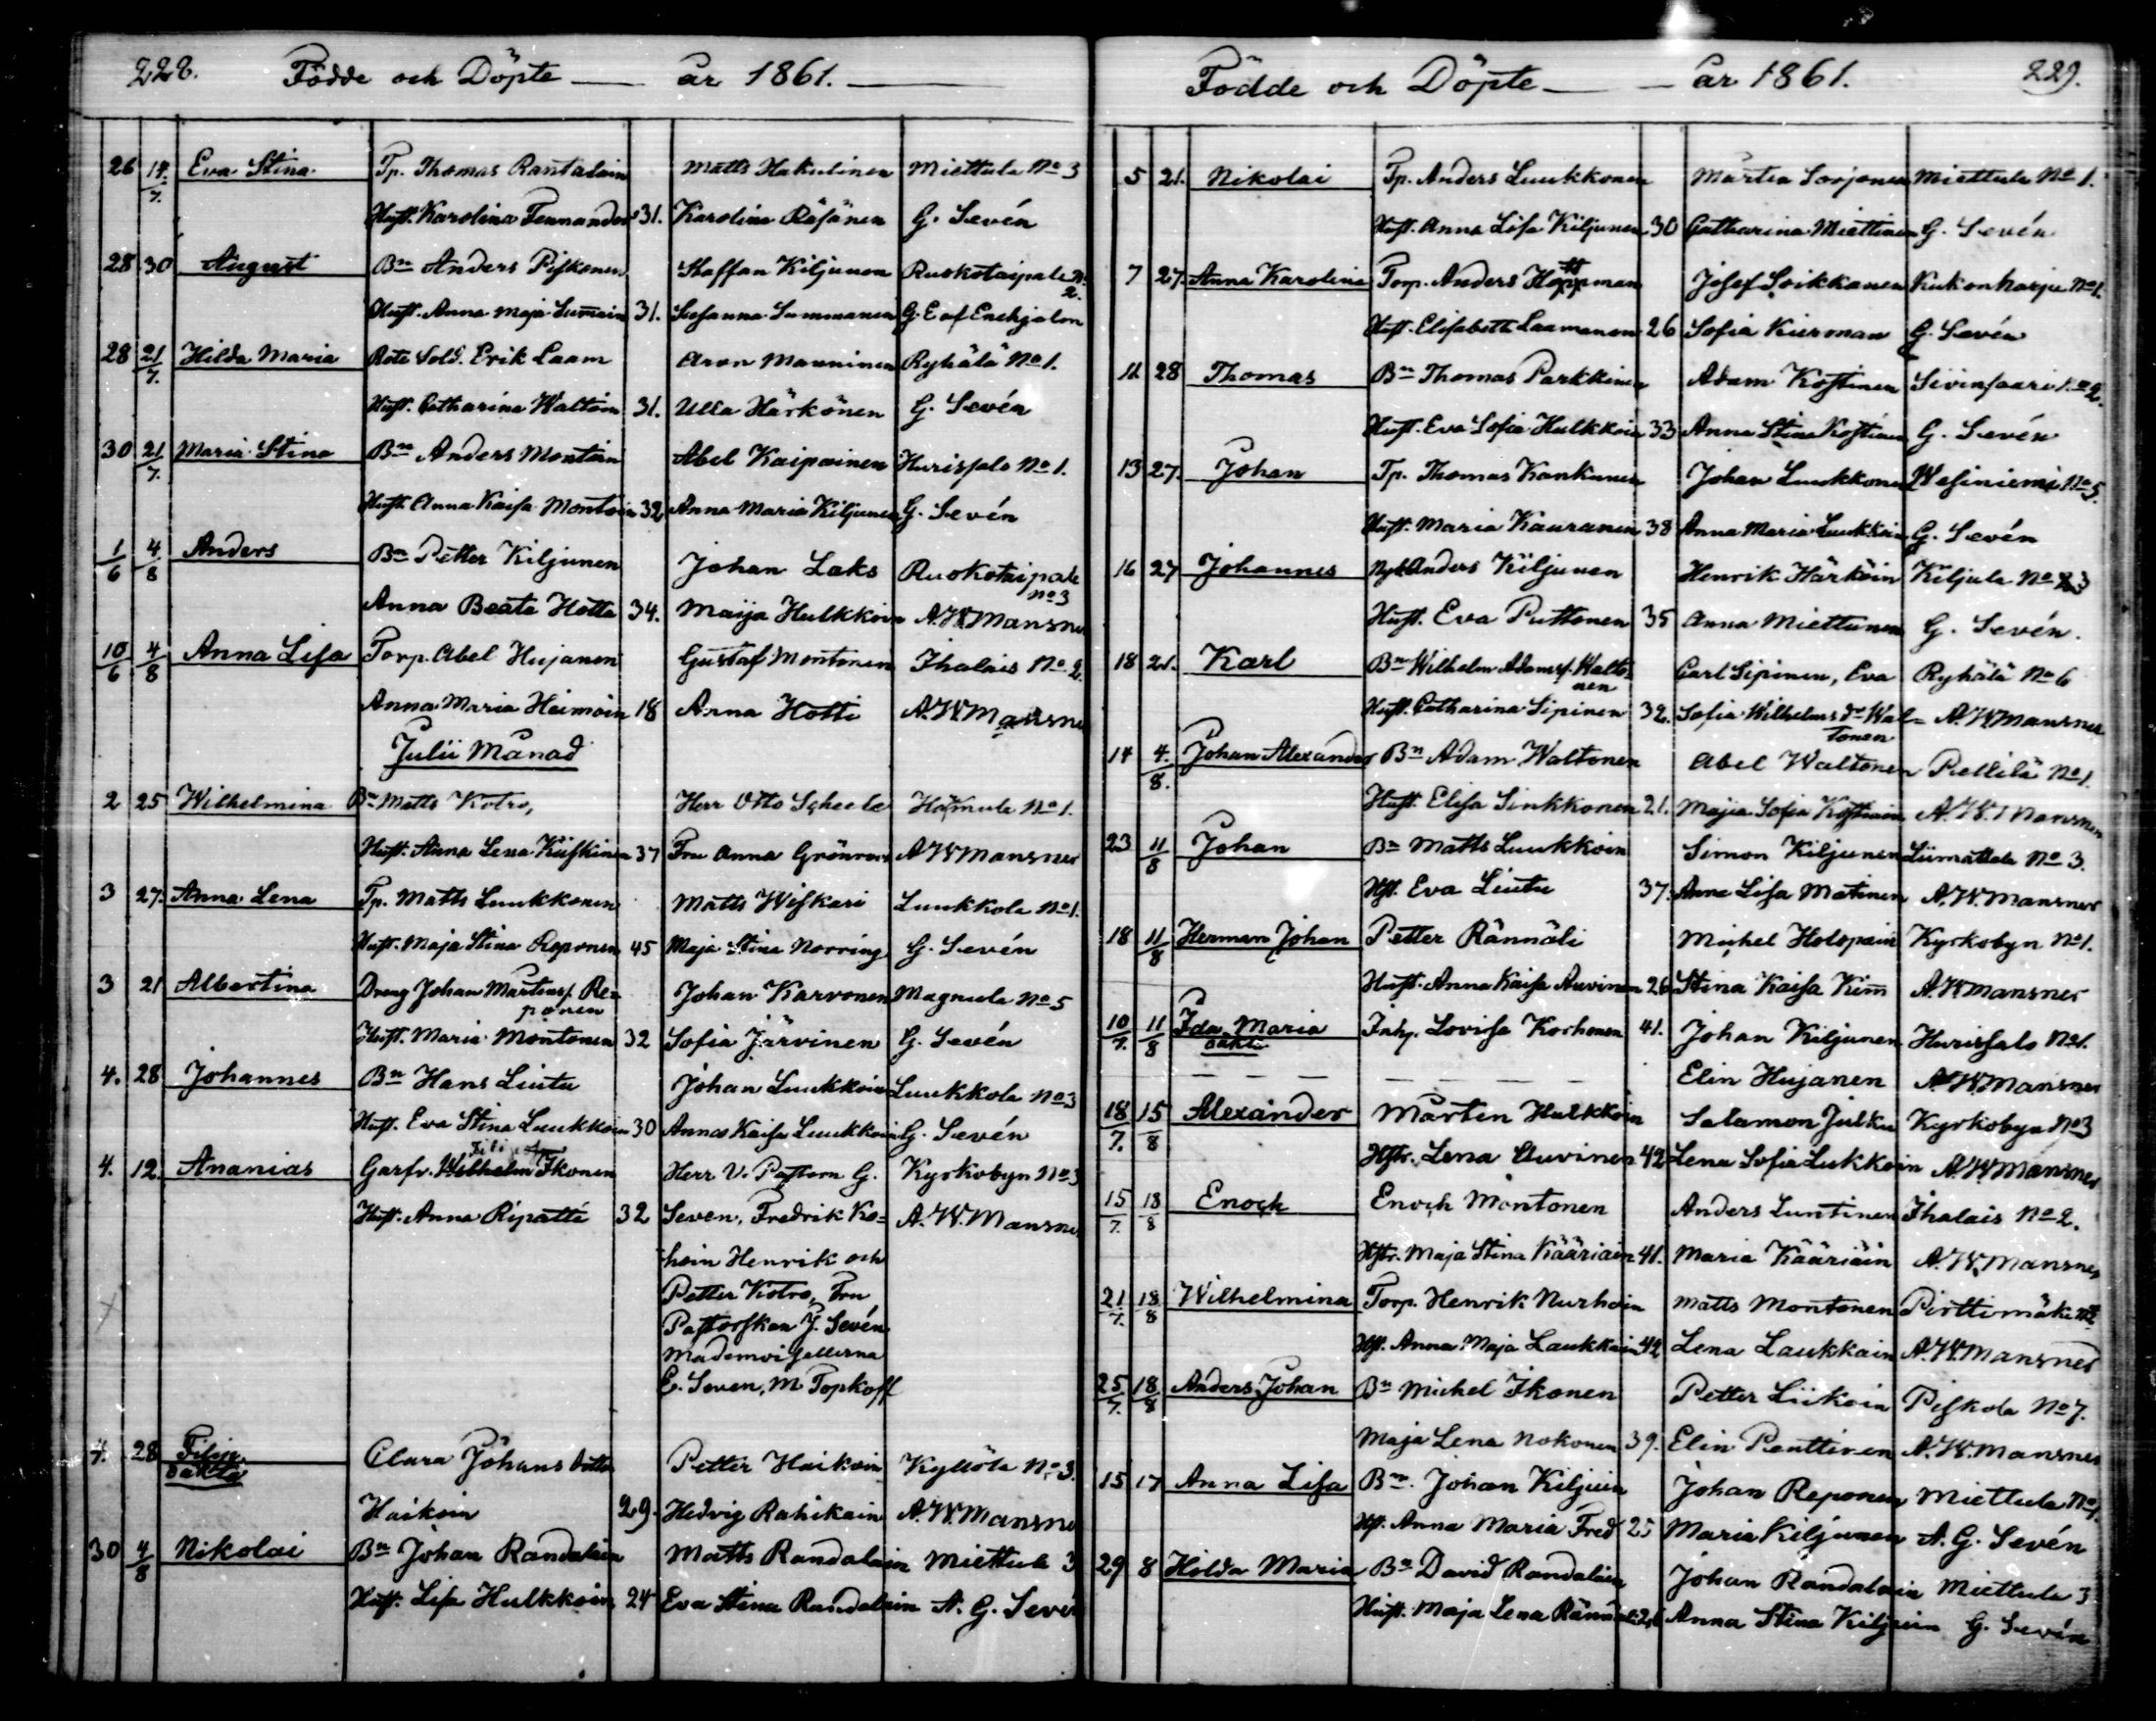 228. Födde och Döpte — år 1861. —
26 14/7. Eva Stina Tp. Thomas Rantalain Matts Hakulinen Miettula No 3
Hust. Karolina Fernander 31. Karolina Räsänen G. Sevén
28 30 August Bn Anders Piskonen Staffan Kiljunen Ruokotaipale No 2.
Hust. Anna Maja Sumain 31. Susanna Summanen G. E af Enehjelm
28 21/7. Hilda Maria Rote Sold. Erik Laam Aron Manninen Ryhälä No 1.
Hust. Catharina Waltoin 31. Ulla Härkönen G. Sevén
30 21/7. Maria Stina Bn Anders Montoin Abel Kaipainen Hurissalo No 1.
Hust. Anna Kaisa Montoin 32 Anna Maria Kiljunen G. Sevén
1/6 4/8 Anders Bn Petter Kiljunen Johan Laks Ruokotaipale No 3
Anna Beata Hotta 34. Maija Hulkkoin A. W. Mansner
10/6 4/8 Anna Lisa Torp. Abel Hujanen Gustaf Montonen Ihalais No 2.
Anna Maria Heimoin 18 Anna Hotti A. W. Mansner
Julii Månad
2 25 Wilhelmina Bn Matts Kotro, Herr Otto Scheele Hamula No 1.
Hust. Anna Lena Kiiskinen 37 Fru Anna Grönroos A W Mansner
3 27. Anna Lena Tp. Matts Luukkonen Matts Wiskari Luukkola No 1.
Hust. Maja Stina Reponen 45 Maja Stina Norring G. Sevén
3 21 Albertina Dreng Johan Martinss. Re-
ponen Johan Karvonen Magnula No 5
Hust. Maria Montonen 32 Sofia Järvinen G. Sevén
4. 28 Johannes Bn Hans Liutu Johan Luukkoin Luukkola No 3
Hust. Eva Stina Luukkoin 30 Anna Kaisa Luukkoin G. Sevén
4. 12. Ananias Garfv. Wilhelm Ikonen Herr V. Pastorn G. Kyrkobyn No 3
Hust. Anna Ripatti 32 Seven, Fredrik Ko= A. W. Mansner
hoin Henrik och
Petter Kotro, Fru
Pastorskan J. Sevén
Mademoisellerna
E. Seven, M Topkoff
4. 28 Filip oäkta Clara Johans dotter Petter Haikoin Kyllölä No 3.
Haikoin 29. Hedvig Rahikain A. W. Mansner
30 4/8 Nikolai Bn Johan Randalain Matts Randalain Miettula 3
Hust. Lisa Hulkkoin 24 Eva Stina Randalain A. G. Seven
Födde och Döpte — år 1861. 229.
5 21. Nikolai Tp. Anders Luukkonen Mårten Sorjonen Miettula No 1.
Hust. Anna Lisa Kiljunen 30 Catharina Miettinen G. Sevén
7 27. Anna Karolina Torp. Anders Hoppman Josef Loikkanen Kukonharju No 1.
Hust. Elisabeth Laamanen 26 Sofia Kieronan G. Sevén
11 28 Thomas Bn Thomas Parkkinen Adam Kostinen Sivinsaari No 2.
Hust. Eva Sofia Hulkkoin 33 Anna Stina Kostinen G. Sevén
13 27. Johan Tp. Thomas Kankunen Johan Luukkonen Wesiniemi No 5.
Hust. Maria Kauranen 38 Anna Maria Luukkoin G. Sevén
16 27 Johannes Nyb Anders Kiljunen Henrik Härköin Kiljula No 3
Hust. Eva Puttonen 35 Anna Miettunen G. Sevén.
18 21. Karl Bn Wilhelm Adamss. Walto-
nen Carl Sipinen, Eva Ryhälä No 6
Hust. Catharina Sipinen 32. Sofia Wilhelms dr Wal=
tonen A. W. Mansner
14 4/8. Johan Alexander Bn Adam Waltonen Abel Waltonen Pellilä No 1.
Hust. Elisa Sinkkonen 21. Majia Sofia Kostiain A. W. Mansner
23 11/8 Johan Bn Matts Luukkoin Simon Kiljunen Liimattala No 3.
Hst. Eva Liutu 37. Anna Lisa Matinen A. W. Mansner
18 11/8 Herman Johan Petter Rännäli Michel Holopain Kyrkobyn No 1.
Hust. Anna Kaisa Auvinen 26 Stina Kaisa Kim A. W Mansner
10/7. 11/8 Ida Maria oäkta Inhp. Lovisa Korhonen 41. Johan Kiljunen Hurissalo No 1.
— — — — — — Elin Hujanen A. W. Mansner
18/7. 15/8 Alexander Mårten Hulkkoin Salamon Julku Kyrkobyn No 3
Hstr. Lena Auvinen 42 Lena Sofia Lukkoin A. W. Mansner
15/7. 18/8 Enoch Enoch Montonen Anders Luntinen Ihalais No 2.
Hstr. Maja Stina Kääriäin 41. Maria Kääriäin A. W. Mansner
21/7. 18/8 Wilhelmina Torp. Henrik Nurhoin Matts Montonen Pirttimäki No 2
Hst. Anna Maja Laukkain 42 Lena Laukkain A. W. Mansner
25/7. 18/8 Anders Johan Bn Michel Ikonen Petter Liikoin Piskola No 7.
Maja Lena Nokonen 39. Elin Penttinen A. W. Mansner
15 17 Anna Lisa Bn. Johan Kiljuin Johan Reponen Miettula No 1.
Hst. Anna Maria Fred 25 Maria Kiljunen A. G. Sevén
29 8 Hilda Maria Bn David Randalain Johan Randalain Miettula 3
Hust. Maja Lena Rännäli 26 Anna Stina Kiljuin G. Sevén